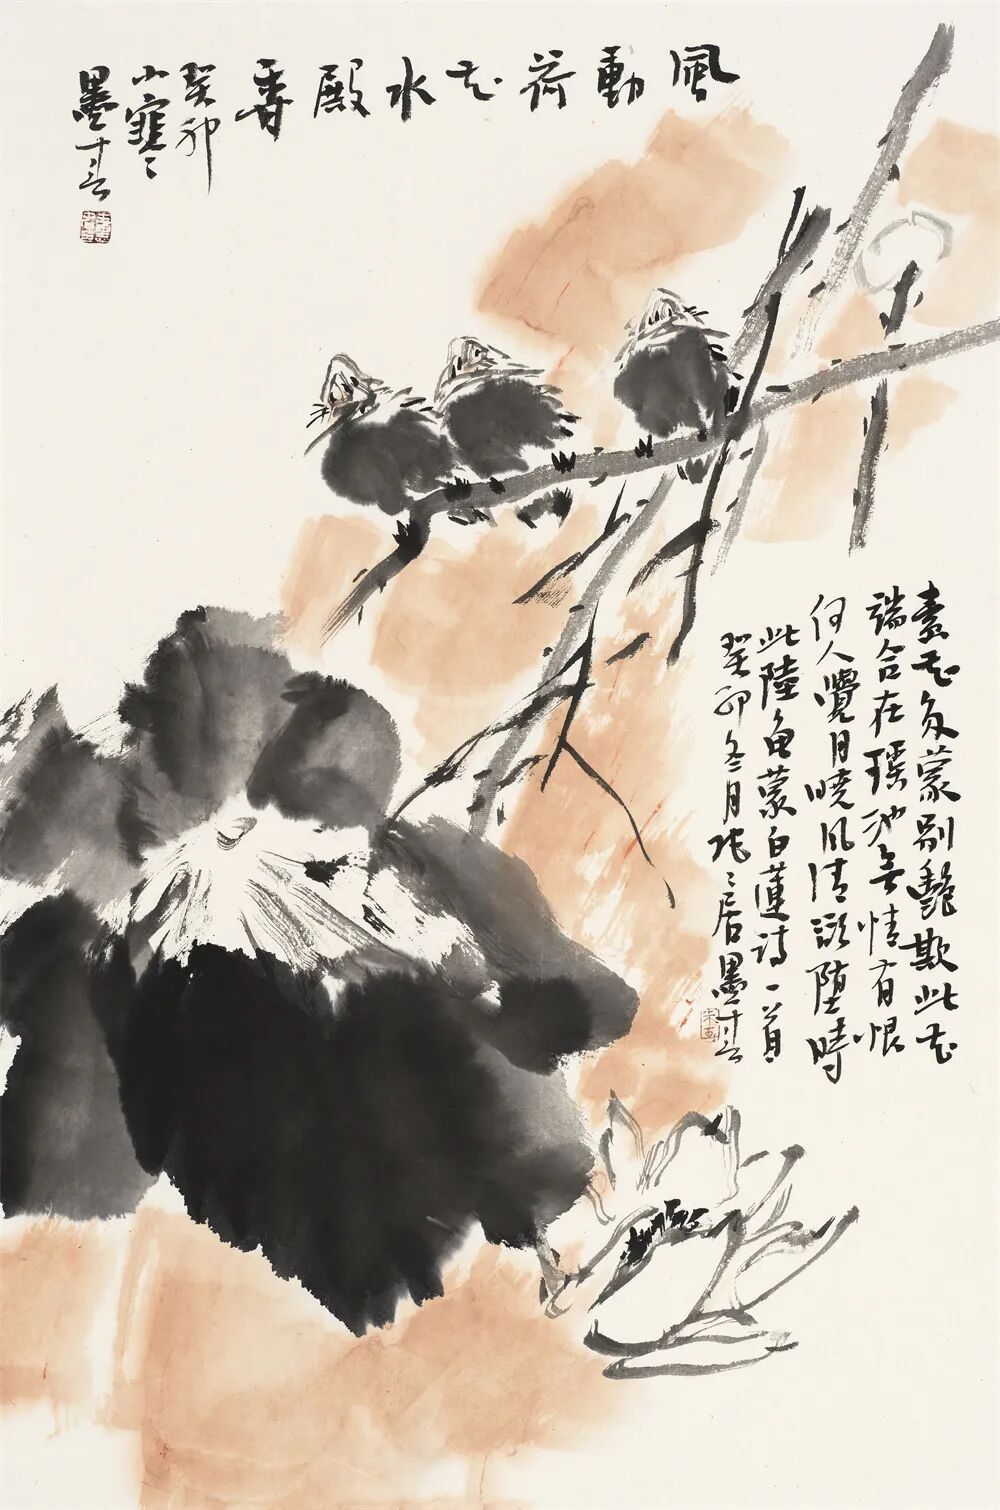 風動荷花水殿香
癸卯
小寒
墨
素花多蒙别艷欺此花
端合在瑶池無情有恨
何人覺月曉風清欲墮時
此陸龜蒙白蓮詩一首
癸卯冬月居墨